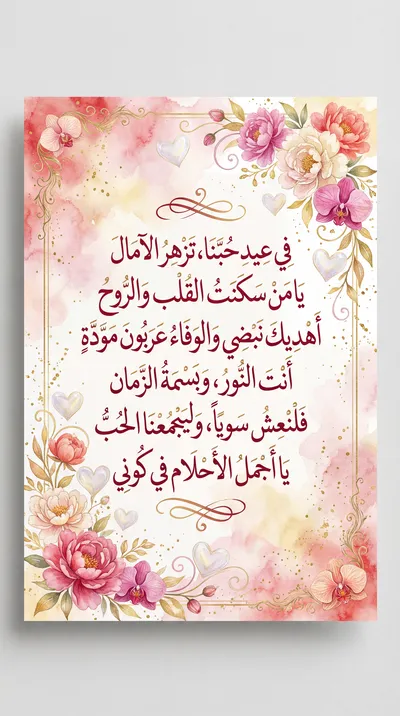 في عِيدِ حُبَّنَا، تَزْهرُ الآمَالَ
يَا مَنْ سَكَنَتُ القُلْب وَالرُّوحُ
أَهْدِيكَ نَبَضي وَالوفَاءُ عَرَبُونَ مَوَدَّةٍ
أَنْتَ النُّورُ، وَبَسْمَةُ الزَّمَان
فَلْنْعِشُ سَوياً، وَليَجْمُعْنَا الحُبُّ
يَا أَجْمَلُ الأَحْلَام في كُوني